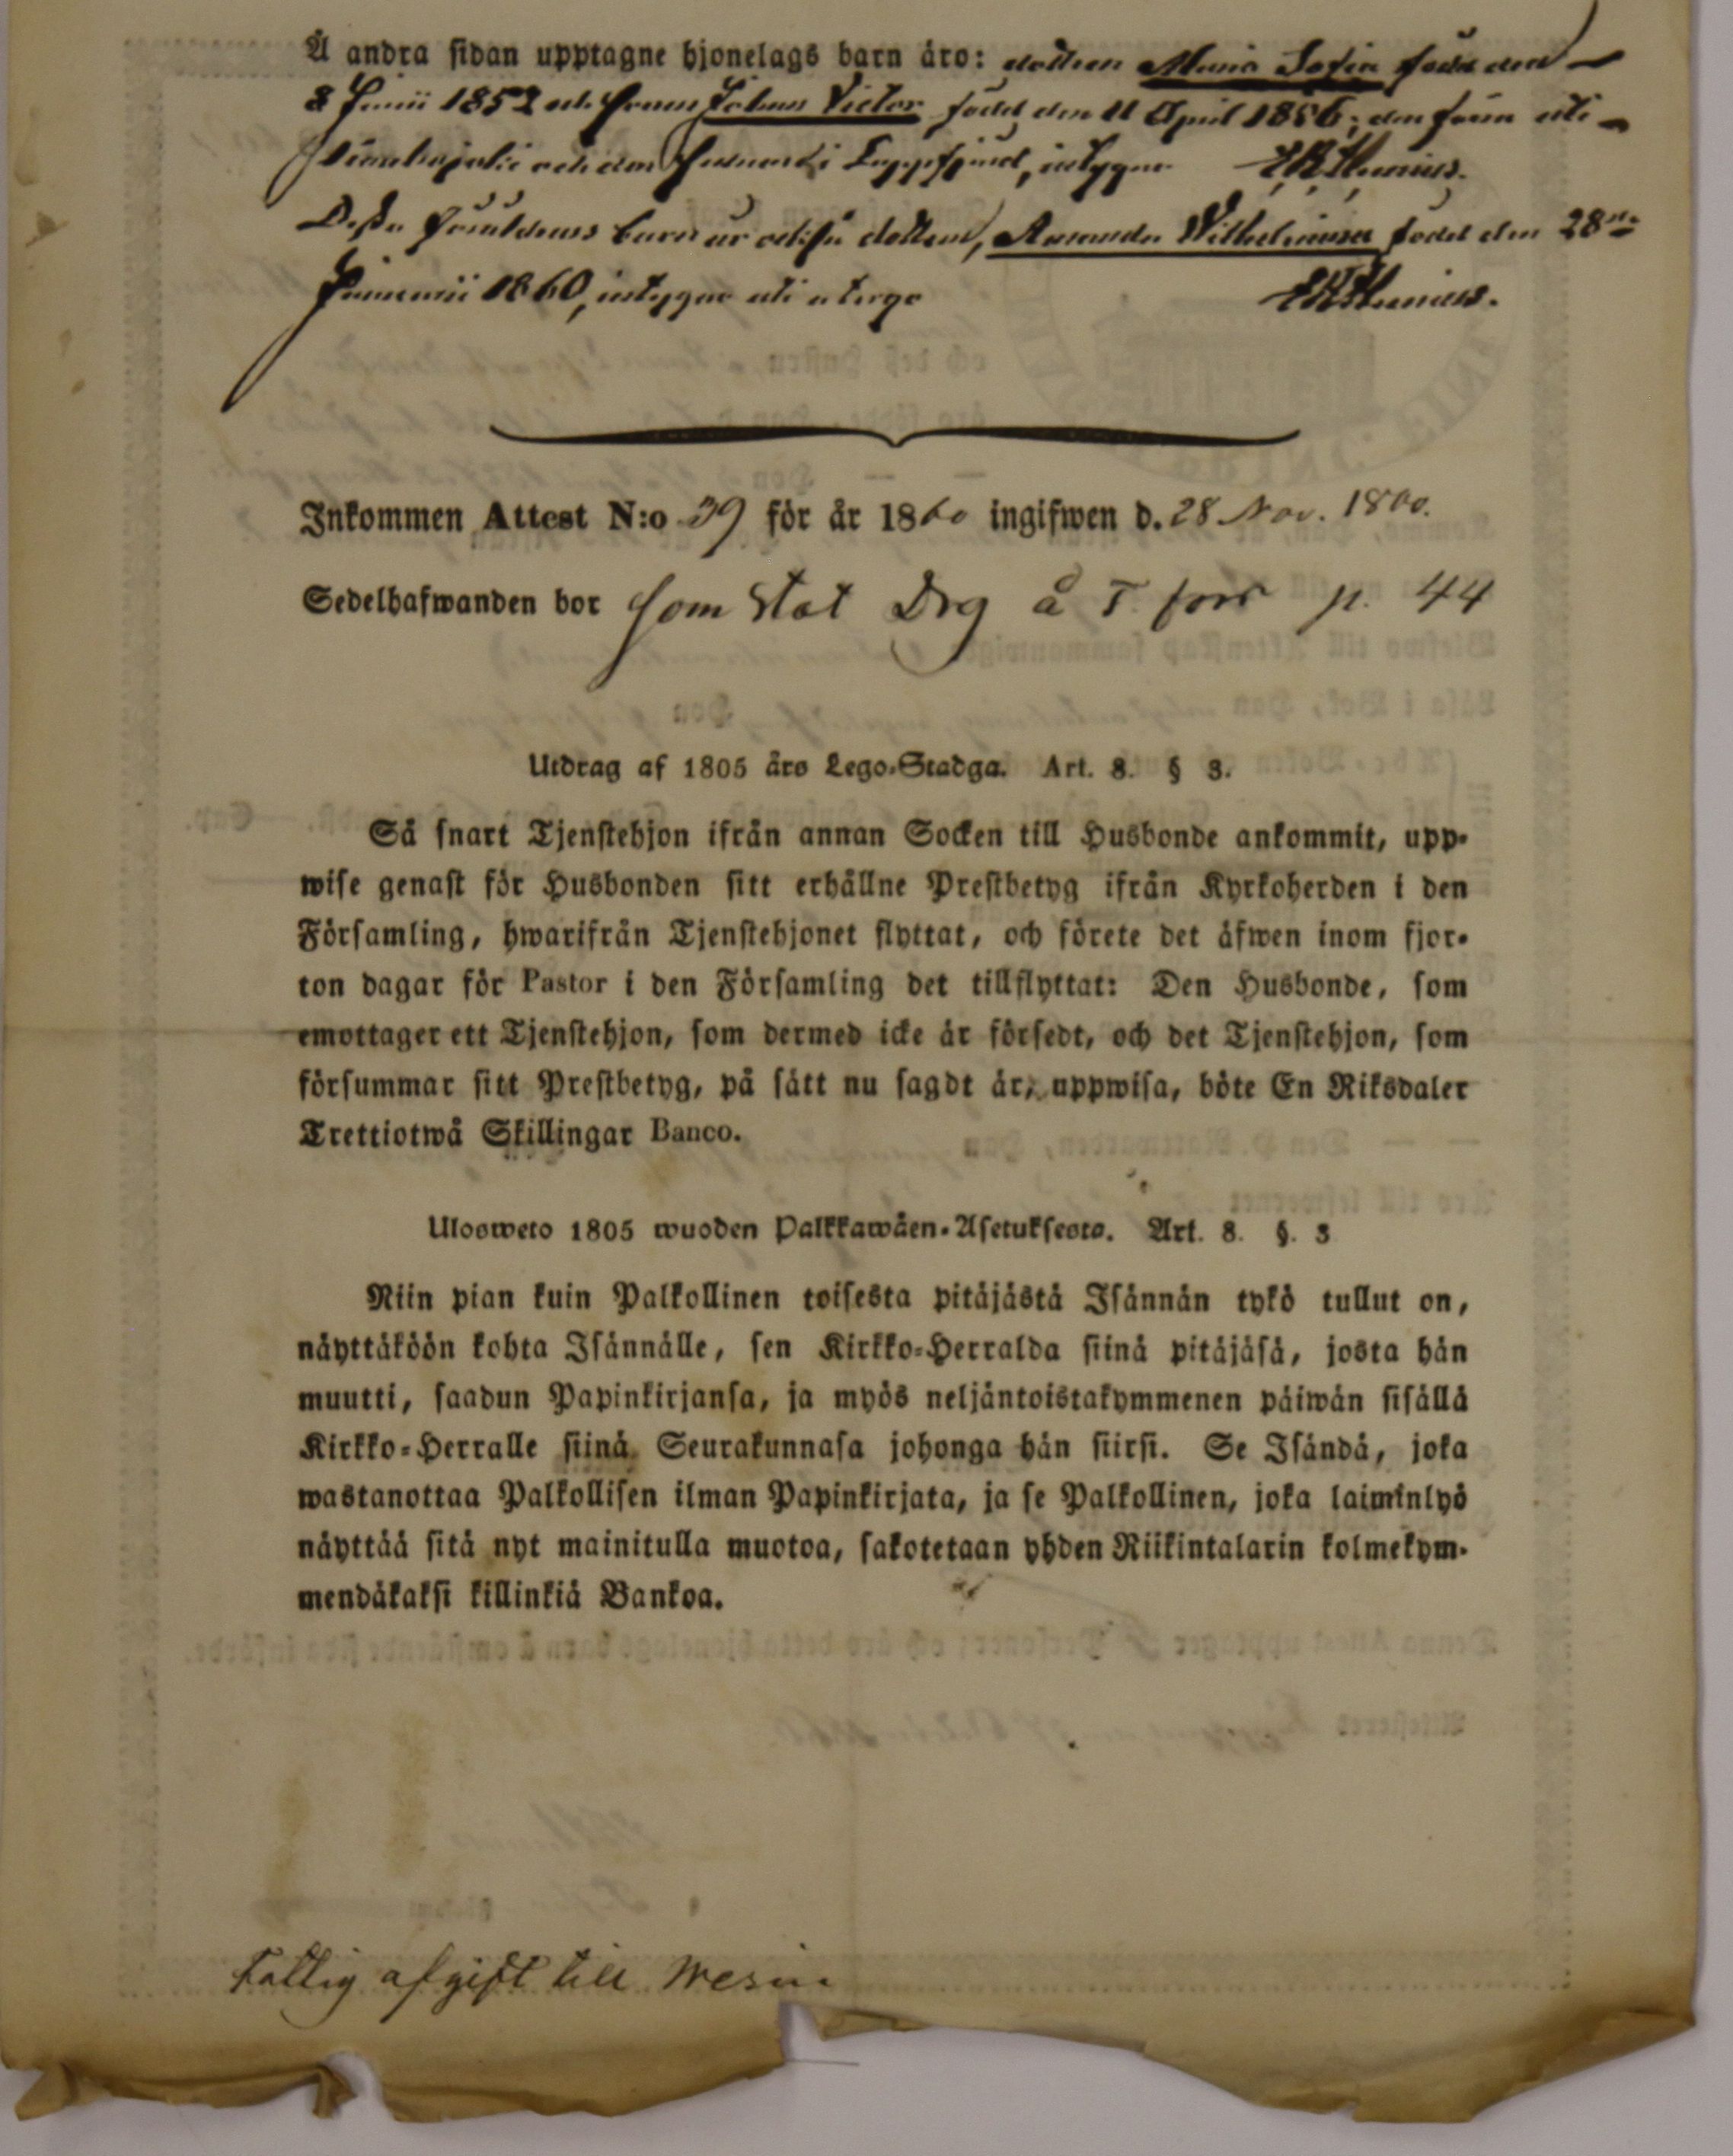 Å andra sidan upptagne hjonelags barn äro: dottren Maria Sofia född den
8 Junii 1852 och sonen Johan Victor född den 11 April 1856; den förra uti
och den i intygar
Dessa föräldrars barn är också dottren, Amanda Wilhelmina född den 28de
1860, intygar uti a tergo
Inkommen Attest N:o 39 för år 1860 ingifwen d. 28 Nov. 1860.
Sedelhafwanden bor som Stat Drg å T. p. 44
Utdrag af 1805 års Lego-Stadga. Art. 8. § 3.
Så snart Tjenstehjon ifrån annan Socken till Husbonde ankommit, upp-
wise genast för Husbonden sitt erhållne Prestbetyg ifrån Kyrkoherden i den
Församling, hwarifrån Tjenstehjonet flyttat, och förete det äfwen inom fjor-
ton dagar för Pastor i den Församling det tillflyttat: Den Husbonde, som
emottager ett Tjenstehjon, som dermed icke är försedt, och det Tjenstehjon, som
försummar sitt Prestbetyg, på sätt nu sagdt är, uppwisa, böte En Riksdaler
Trettiotwå Skillingar Banco.
Ulosweto 1805 wuoden Palkkawäen-Asetuksesta. Art. 8. §. 3
Niin pian kuin Palkollinen toisesta pitäjästä Isännän tykö tullut on,
näyttäköön kohta Isännälle, sen Kirkko-Herralda siinä pitäjäsä, josta hän
muutti, saadun Papinkirjansa, ja myös neljäntoistakymmenen päiwän sisällä
Kirkko-Herralle siinä Seurakunnasa johonga hän siirsi. Se Isändä, joka
wastanottaa Palkollisen ilman Papinkirjata, ja se Palkollinen, joka laiminlyö
näyttää sitä nyt mainitulla muotoa, sakotetaan yhden Riikintalarin kolmekym-
mendäkaksi killinkiä Bankoa.
Fattig afgift till